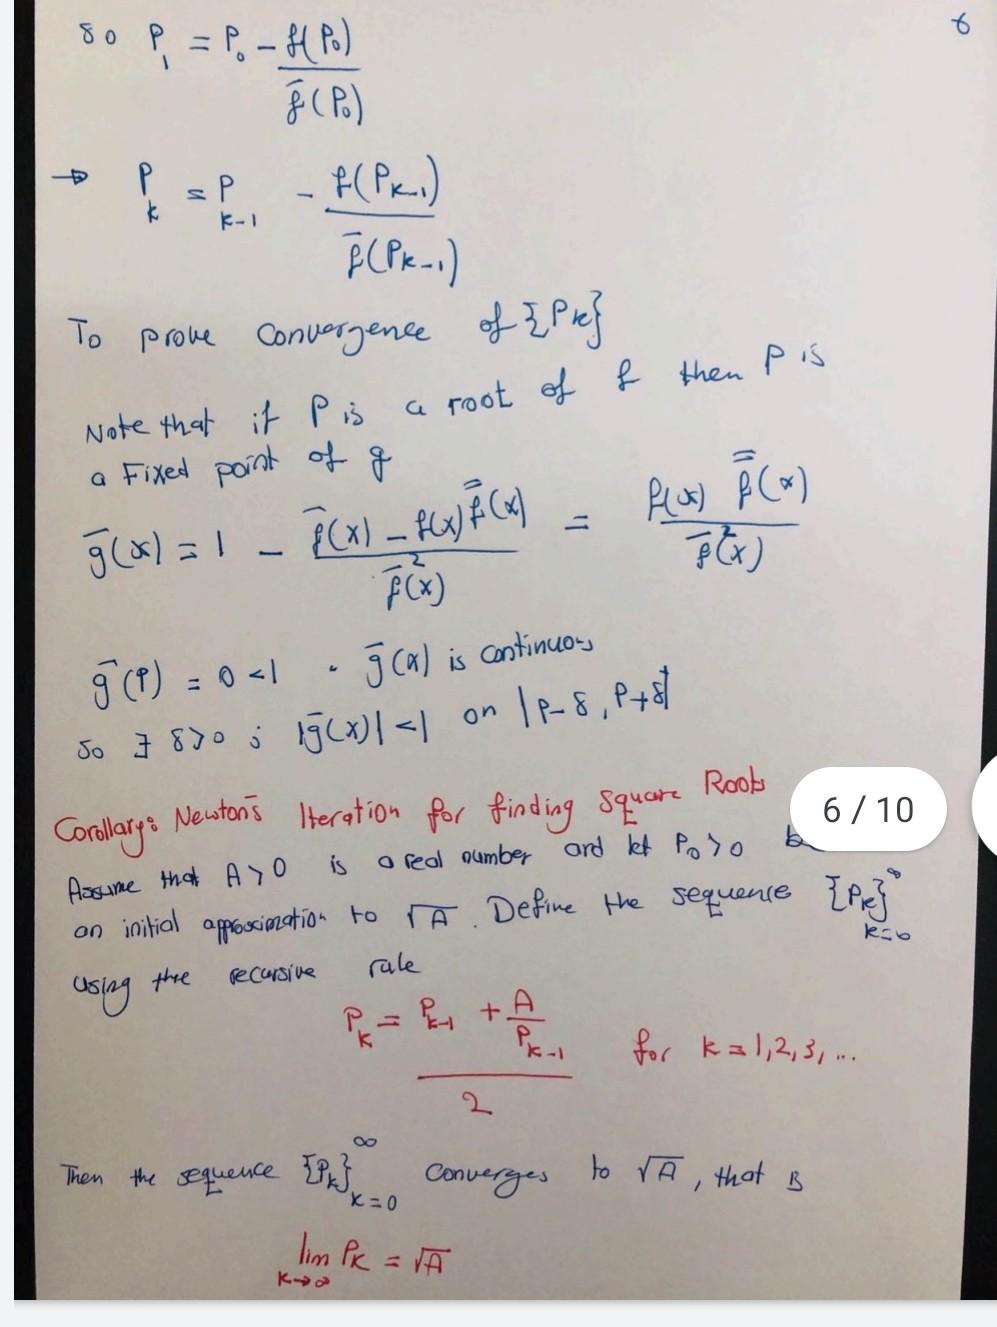 6
so P₁ = P₀ - f(P₀) / f̄(P₀)
→ P_k = P_{k-1} - f(P_{k-1}) / f̄(P_{k-1})
To prove convergence of {P_k}
Note that if P is a root of f then P is
a Fixed point of g
ḡ(x) = 1 - (f̄(x) - f(x) f̿(x)) / f̄²(x) = f(x) f̿(x) / f̄²(x)
ḡ(P) = 0 < 1 . ḡ(x) is continuous
So ∃ δ>0 ; |ḡ(x)| < 1 on |P-δ, P+δ|
Corollary: Newton's Iteration for finding square Roots
6 / 10
Assume that A > 0 is a real number and let P₀ > 0
an initial approximation to √A . Define the sequence {P_k}_{k=0}^∞
using the recursive rule
P_k = (P_{k-1} + A/P_{k-1}) / 2 for k = 1, 2, 3, ...
Then the sequence {P_k}_{k=0}^∞ converges to √A, that is
lim_{k→∞} P_k = √A